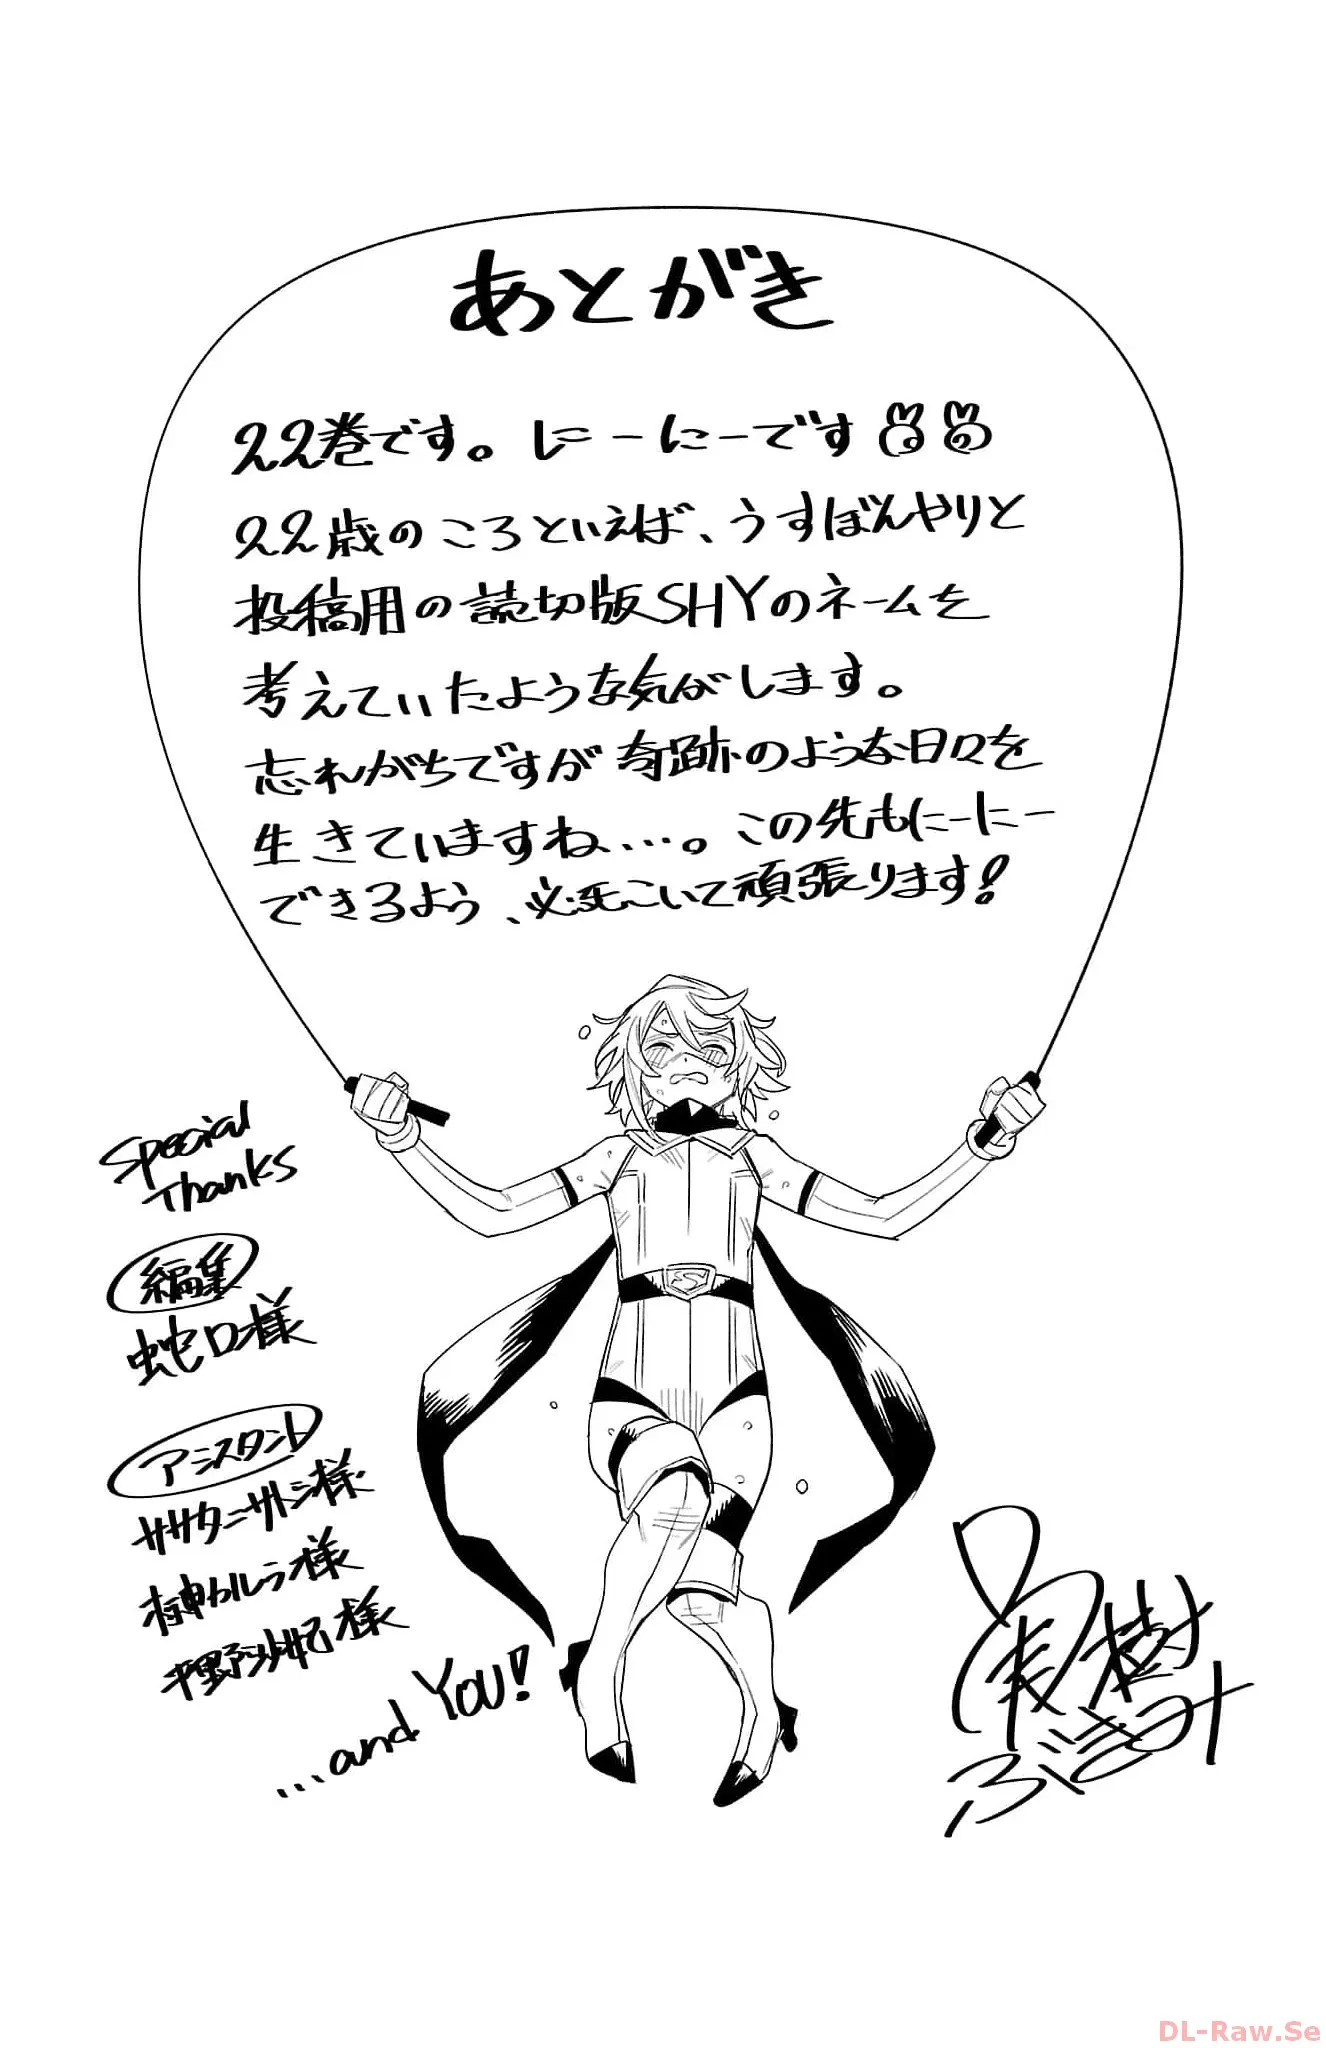 あとがき
22巻です。にーにーです
22歳のころといえば、うすぼんやりと
投稿用の読切版SHYのネームを
考えていたような気がします。
忘れがちですが奇跡のような日々を
生きていますね…。この先もにーにー
できるよう、必死こいて頑張ります!
Special
Thanks
編集
蛇口様
アシスタント
ササタニサトシ様
榊カルラ様
野沙妃様
...and YOU!
S
実樹
ぶきみ
DL-Raw.Se